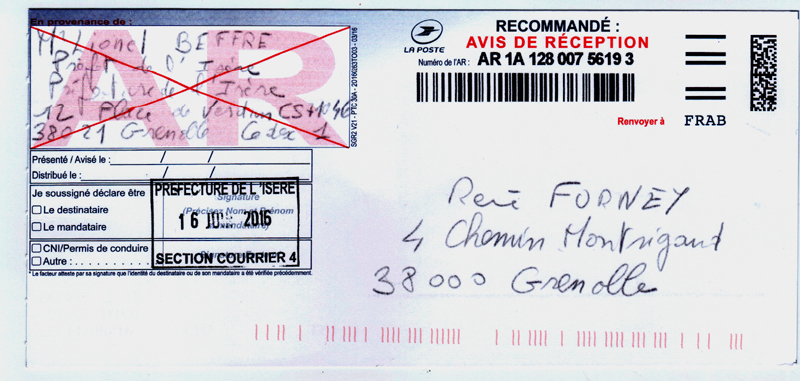 En provenance de :
M. Lionel BEFFRE
Préfet de l'Isère
Préfecture de l'Isère
12 Place de Verdun CS
38021 Grenoble Cedex 1
AR
SGR2 V21 - PTC 30A - 03/16
LA POSTE
RECOMMANDÉ :
AVIS DE RÉCEPTION
Numéro de l'AR : AR 1A 128 007 5619 3
Renvoyer à FRAB
Présenté / Avisé le : / /
Distribué le : / /
Je soussigné déclare être
Le destinataire
Le mandataire
CNI/Permis de conduire
Autre : . . . . . . . . . .
Signature
(Précisez Nom et Prénom
PREFECTURE DE L'ISERE
16 2016
SECTION COURRIER 4
* Le facteur atteste par sa signature que l'identité du destinataire ou de son mandataire a été vérifiée précédemment.
René FORNEY
4 Chemin Montrigaud
38000 Grenoble